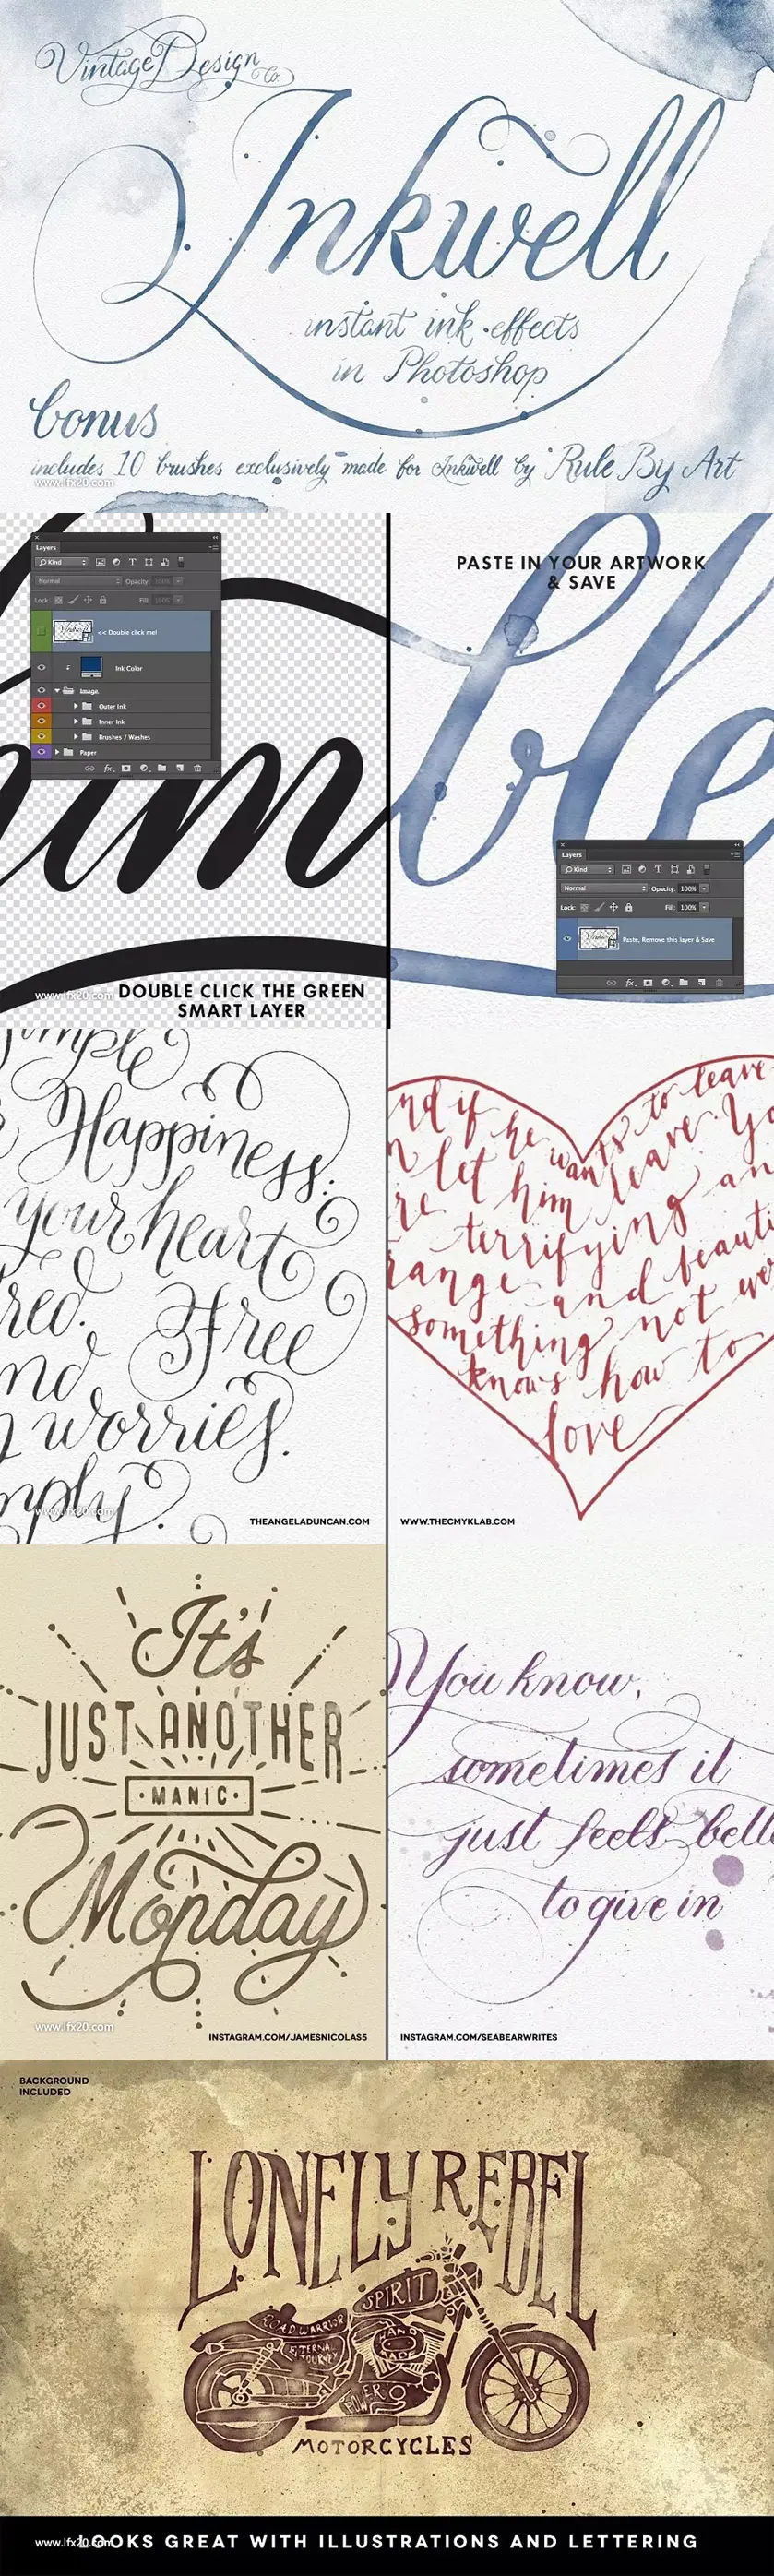 Vintage Design Co.
Inkwell
instant ink effects
in Photoshop
bonus
includes 10 brushes exclusively made for Inkwell by Rule By Art
www.lfx20.com
Layers
Kind
Normal
Opacity: 100%
Lock:
Fill: 100%
<< Double click me!
Ink Color
Image
Outer Ink
Inner Ink
Brushes / Washes
Paper
www.lfx20.com
DOUBLE CLICK THE GREEN
SMART LAYER
PASTE IN YOUR ARTWORK
& SAVE
ble
Layers
Kind
Normal
Opacity: 100%
Lock:
Fill: 100%
Paste, Remove this layer & Save
Happiness:
your heart
Free
worries.
www.lfx20.com
THEANGELADUNCAN.COM
nd if he wants to leave
let him leave. Yo
re terrifying an
range and beauti
something not
knows how to
love
WWW.THECMYKLAB.COM
It's
JUST ANOTHER
·MANIC·
Monday
www.lfx20.com
INSTAGRAM.COM/JAMESNICOLAS5
You know,
sometimes it
just feels bett
to give in
INSTAGRAM.COM/SEABEARWRITES
BACKGROUND
INCLUDED
LONELY REBEL
SPIRIT
ROAD WARRIOR
ETERNAL
POWER
MOTORCYCLES
www.lfx20.com
LOOKS GREAT WITH ILLUSTRATIONS AND LETTERING